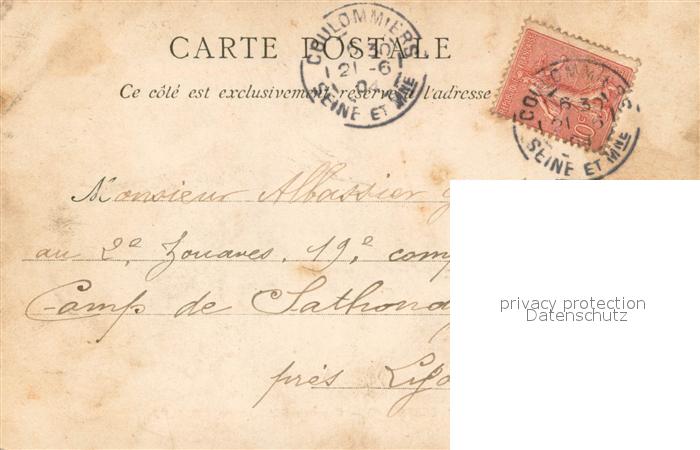 CARTE POSTALE
COULOMMIERS
6 30
21 -6
04
SEINE ET MNE
Ce côté est exclusivement réservé à l'adresse
10
COULOMMIERS
6 30
21 6
SEINE ET MNE
Monsieur Albassier
au 2e Zouaves, 19e comp
Camp de Sathonay
près Lyo
privacy protection
Datenschutz